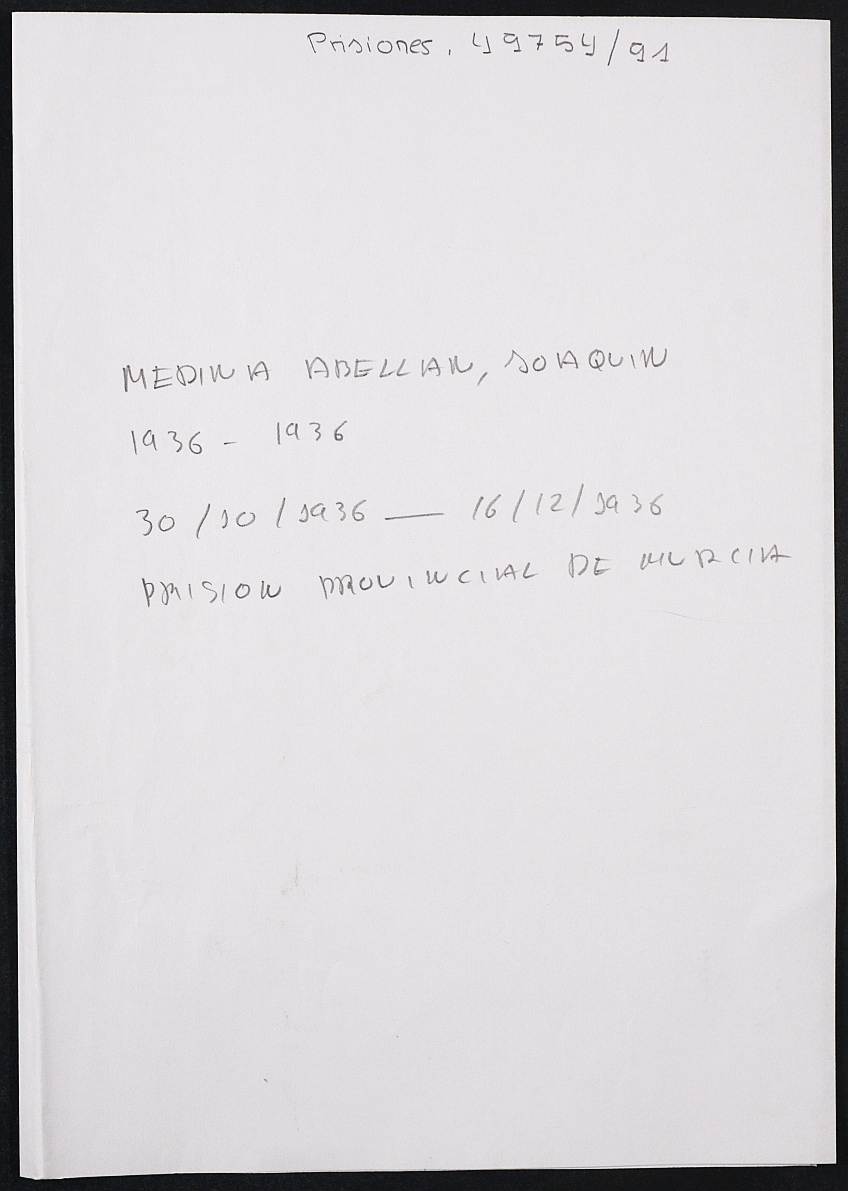 Prisiones, 49754/91
MEDINA ABELLAN, JOAQUIN
1936 - 1936
30/10/1936 — 16/12/1936
PRISION PROVINCIAL DE MURCIA